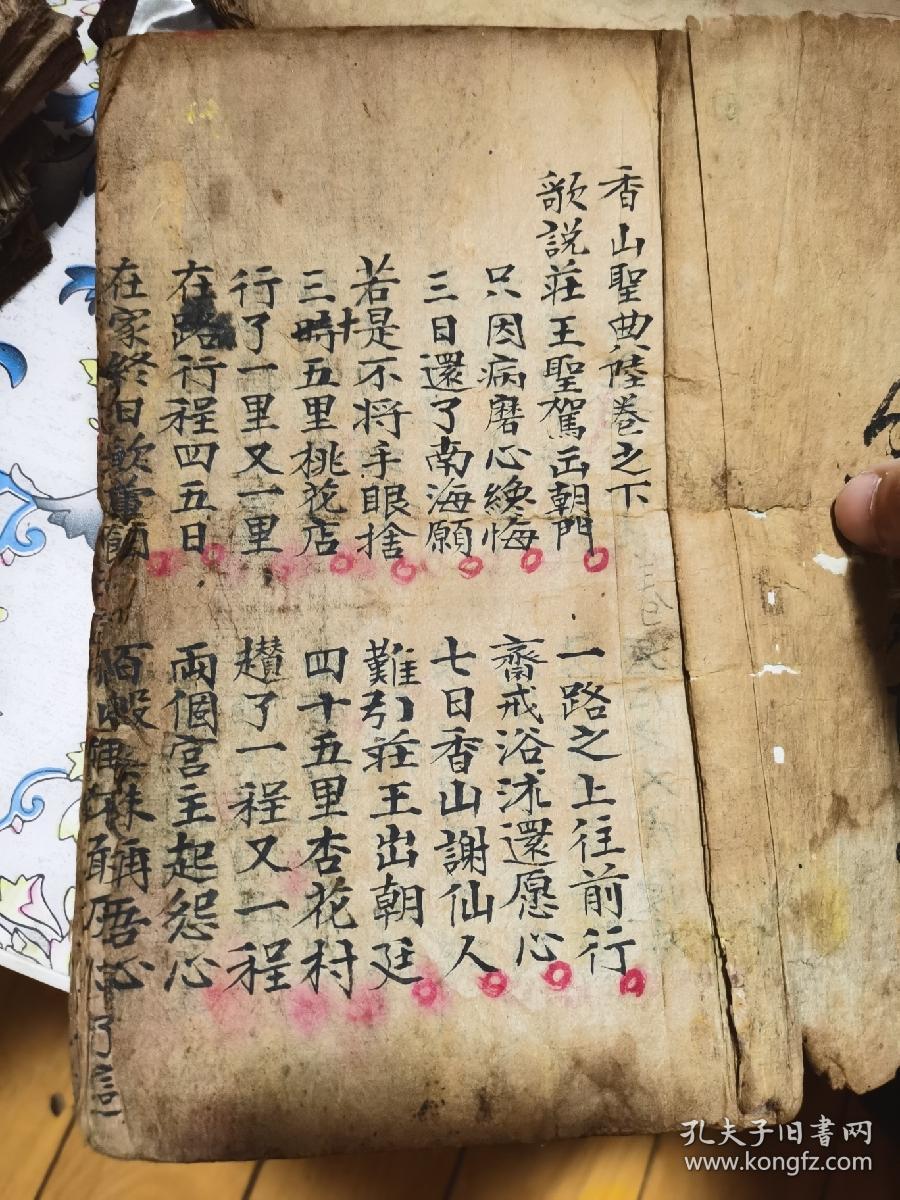 香山聖典陸卷之下
歌説莊王聖駕出朝門 一路之上往前行
只因病磨心纔悔 齋戒浴沐還愿心
三日還了南海願 七日香山謝仙人
若是不将手眼捨 難引莊王出朝廷
三時十五里桃花店 四十五里杏花村
行了一里又一里 趲了一程又一程
在路行程四五日 兩個宫主起怨心
在家終日 稱吾心
孔夫子旧書网
www.kongfz.com